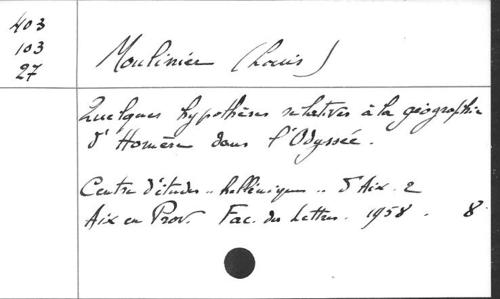 403
103
27
Moulinier (Louis)
Quelques hypothèses relatives à la géographie
d'Homère dans l'Odyssée.
Centre d'études .. helléniques .. d'Aix. 2
Aix en Prov. Fac. des Lettres. 1958. 8°